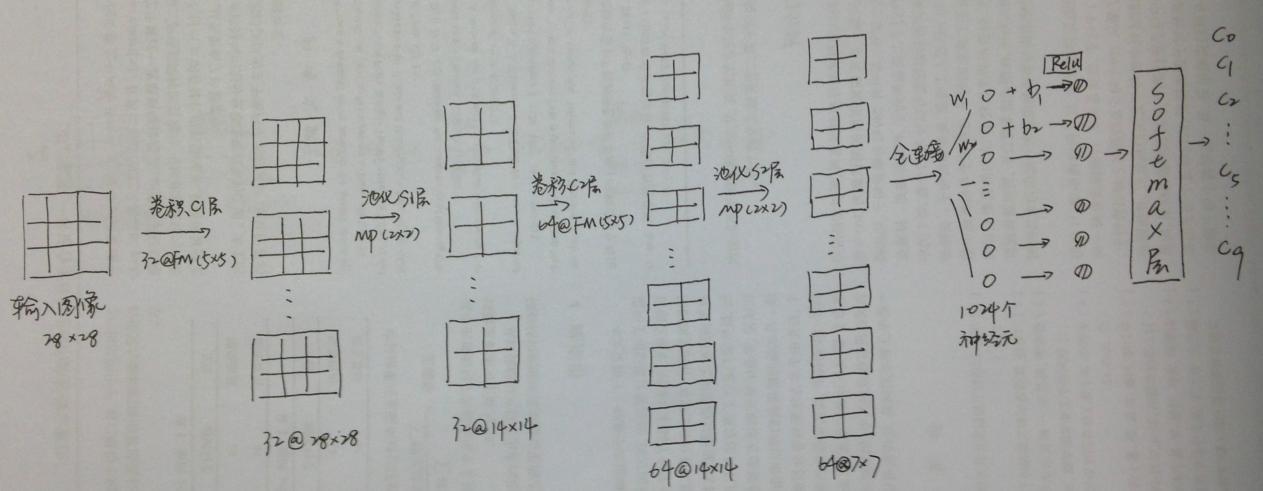 输入图像
28×28
卷积C1层
32@FM(5×5)
32@28×28
池化S1层
MP(2×2)
32@14×14
卷积C2层
64@FM(5×5)
64@14×14
池化S2层
MP(2×2)
64@7×7
全连接
W1 O + b1
O + b2
W2 O
1024个
神经元
Relu
softmax层
C0
C1
C2
C5
C9